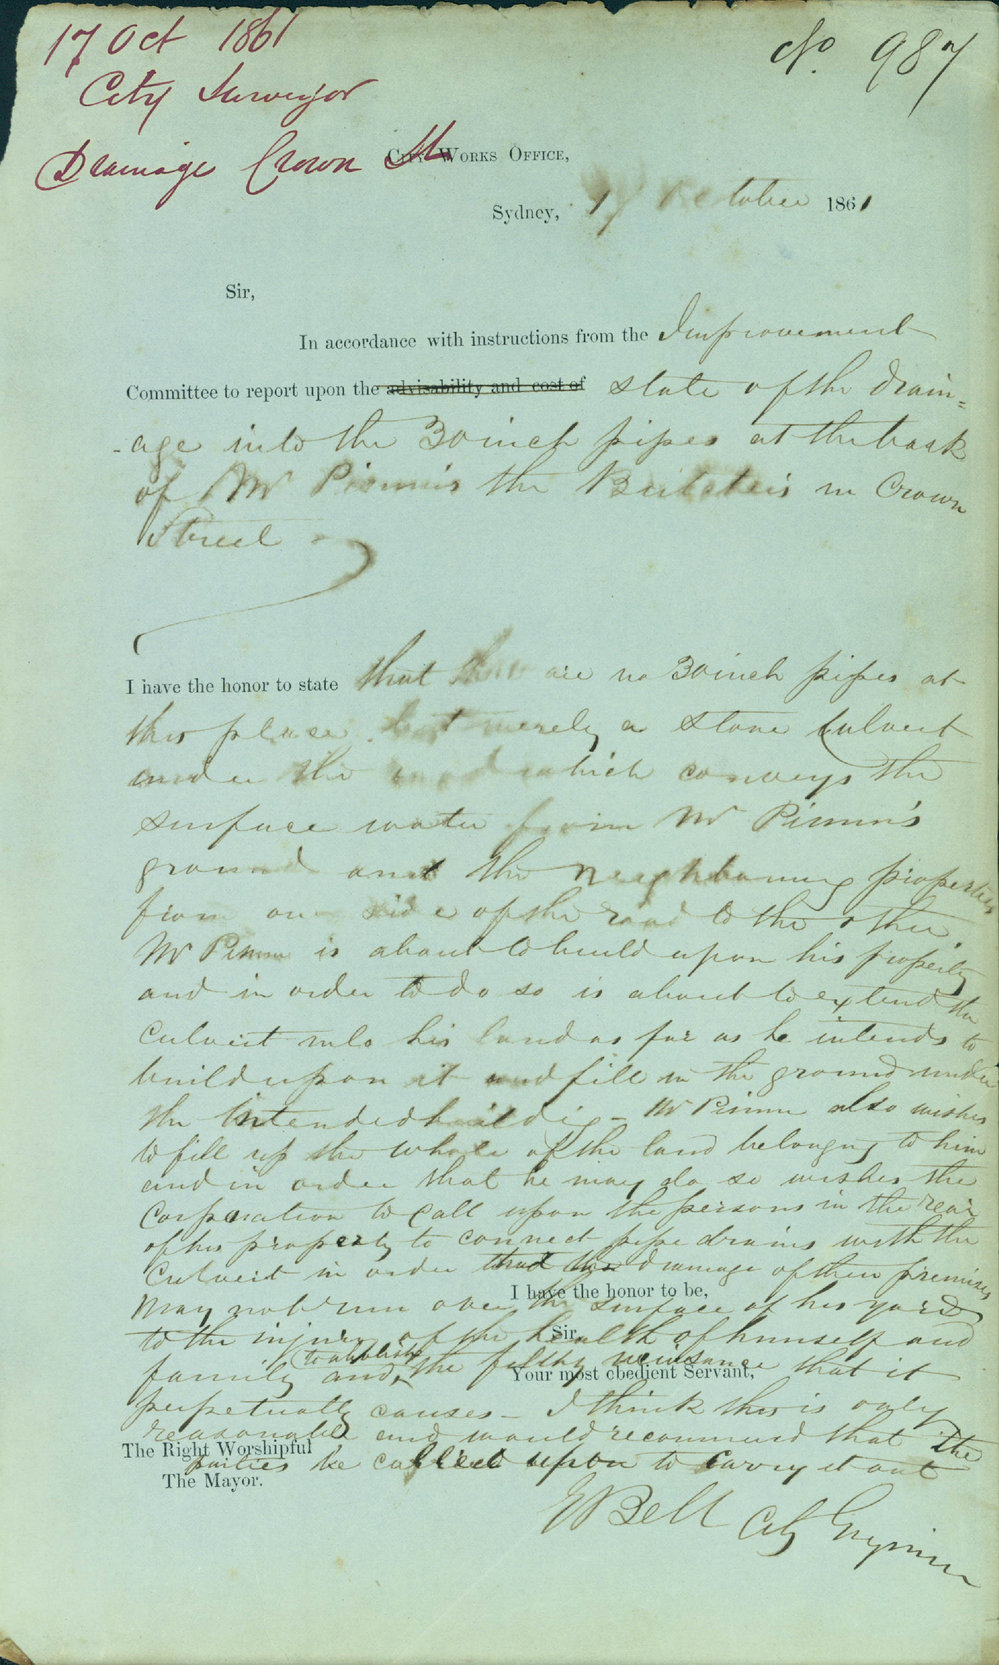 17 Oct 1861
City Surveyor
Drainage Crown St
No. 987
City Works Office,
Sydney, 17 October 1861
Sir,
In accordance with instructions from the Improvement
Committee to report upon the advisability and cost of state of the drain=
-age into the 30 inch pipes at the back
of Mr Pimm's the in Crown
Street
I have the honor to state that there are no 30 inch pipes at
this place but merely a stone Culvert
under the road which conveys the
surface water from Mr Pimm's
ground and the neighbouring properties
from one side of the road to the other.
Mr Pimm is about to build upon his property
and in order to do so is about to extend the
Culvert into his land as far as he intends to
build upon it and fill in the ground under
the intended building - Mr Pimm also wishes
to fill up the whole of the land belonging to him
and in order that he may do so wishes the
Corporation to call upon the persons in the rear
of his property to connect pipe drains with the
Culvert in order that the drainage of their premises
may not run over the surface of his yard
to the injury of the health of himself and
family and to abolish the filthy nuisance that it
perpetually causes - I think this is only
reasonable and would recommend that the
parties be called upon to carry it out
I have the honor to be,
Sir,
Your most obedient Servant,
The Right Worshipful
The Mayor.
E Bell City Engineer